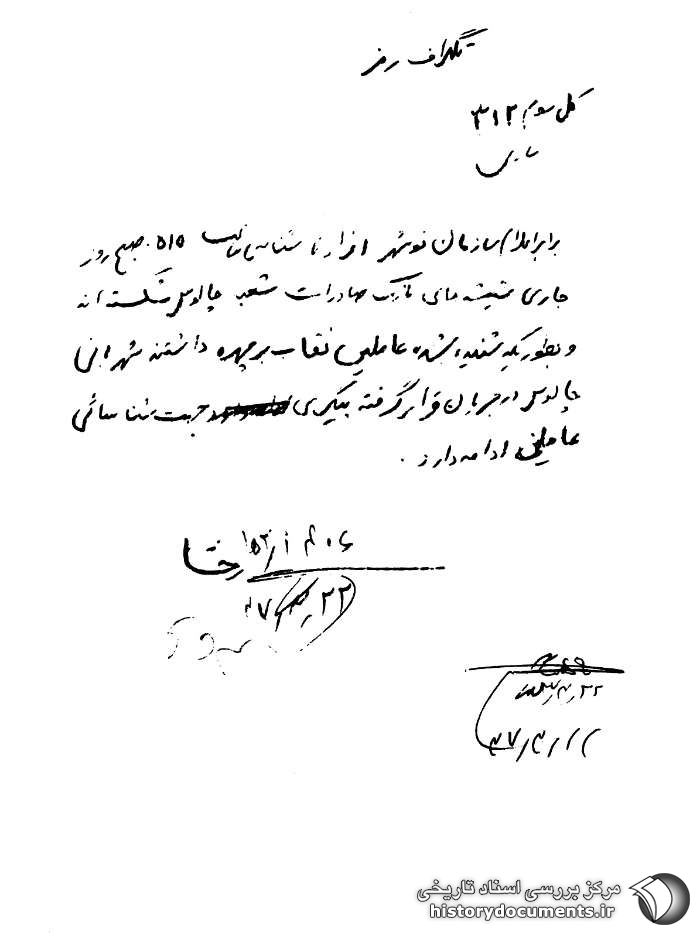 تلگراف رمز
کل سوم ۳۱۲
ساری
برابر اعلام سازمان نوشهر افراد ناشناس ساعت ۰۵۱۵ صبح روز
جاری شیشه های بانک صادرات شعبه چالوس شکسته اند
و بطوریکه شنیده شده عاملین نقاب بر چهره داشتند شهربانی
چالوس در جریان قرار گرفته پیگیری جهت شناسائی
عاملین ادامه دارد.
رخشا
۲۲
۳۷/۴/۲۲
مرکز بررسی اسناد تاریخی
historydocuments.ir